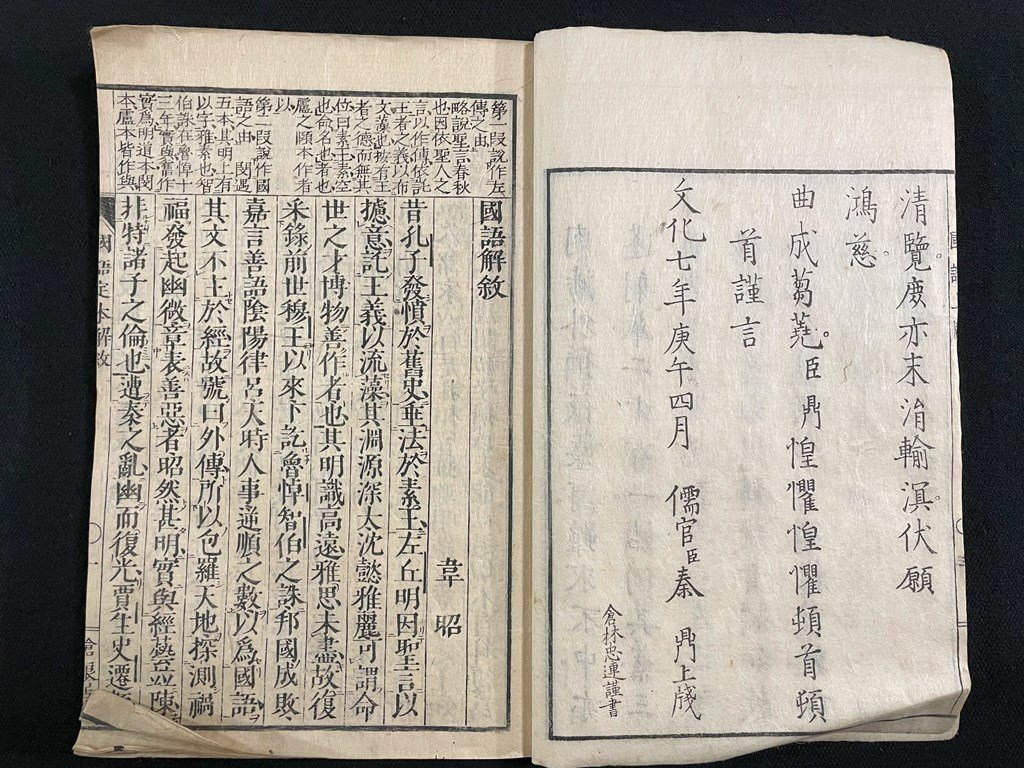 清覽庶亦末涓輸溟伏願
鴻慈
曲成蒭蕘臣鼎惶懼惶懼頓首頓
首謹言
文化七年庚午四月 儒官臣秦 鼎上牋
倉林忠連謹書
第一段說作左
傳之由
略說聖言春秋
也因依聖人之
言以作傳依託
王者之義以布
文藻也按有王
者之德而無其
位曰素王素空
也命名也者也
盧之頤本作者
以
第二段說作國
語之由 閔遇
五本其明上有
以字雅素也智
伯誅在魯悼十
三年實與舊作
實爲明道本閔
本盧本皆作與
國語解敘
韋昭
昔孔子發憤於舊史垂法於素王左丘明因聖言以
攄意託王義以流藻其淵源深大沈懿雅麗可謂命
世之才博物善作者也其明識高遠雅思未盡故復
采錄前世穆王以來下訖魯悼智伯之誅邦國成敗
嘉言善語陰陽律呂天時人事逆順之數以爲國語
其文不主於經故號曰外傳所以包羅天地探測禍
福發起幽微章表善惡者昭然甚明實與經藝竝陳
非特諸子之倫也遭秦之亂幽而復光賈生史遷
國語定本解敘
一